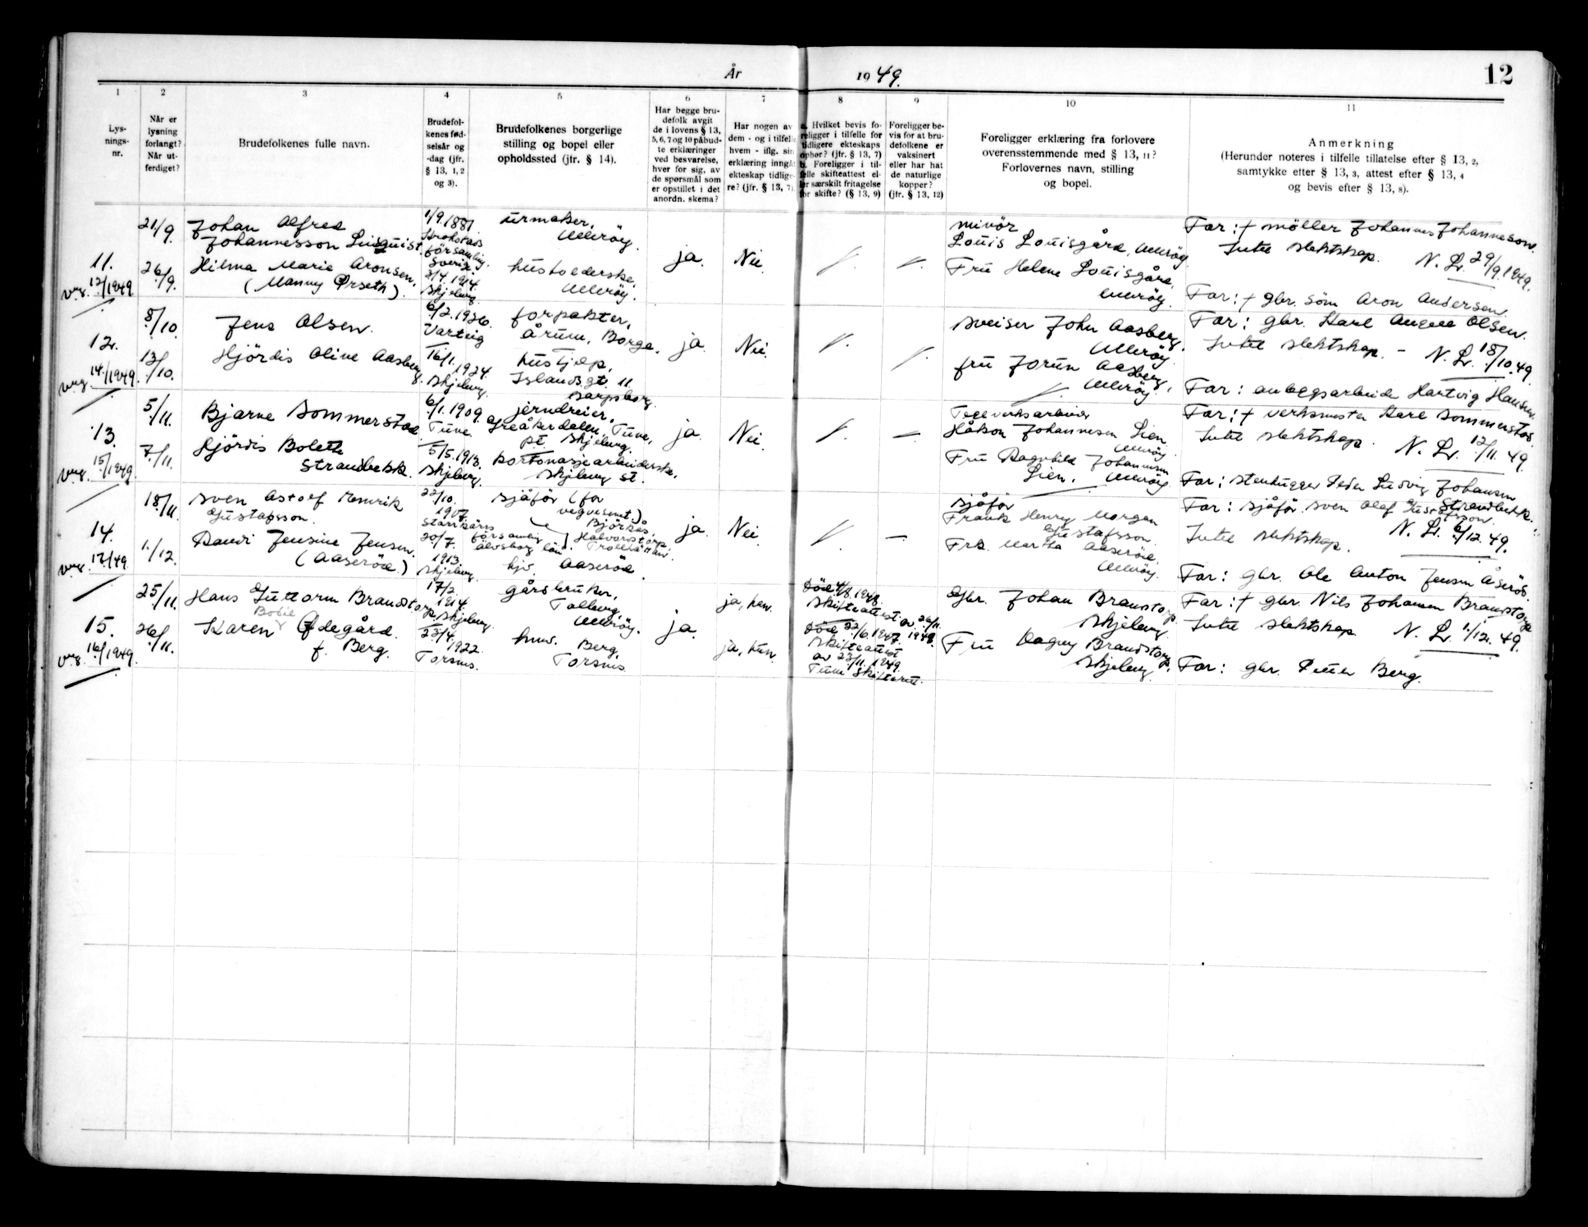 År 1949.
12
1 2 3 4 5 6 7 8 9 10 11
Lys-
nings-
nr.
Når er
lysning
forlangt?
Når ut-
ferdiget?
Brudefolkenes fulle navn.
Brudefol-
kenes fød-
selsår og
-dag (jfr.
§ 13, 1, 2
og 3).
Brudefolkenes borgerlige
stilling og bopel eller
opholdssted (jfr. § 14).
Har begge bru-
defolk avgit
de i lovens § 13,
5, 6, 7 og 10 påbud-
te erklæringer
ved besvarelse,
hver for sig, av
de spørsmål som
er opstillet i det
anordn. skema?
Har nogen av
dem - og i tilfelle
hvem - iflg. sin
erklæring inngått
ekteskap tidlige-
re? (jfr. § 13, 7).
a. Hvilket bevis fo-
religger i tilfelle for
tidligere ekteskaps
ophør? (jfr. § 13, 7)
b. Foreligger i til-
felle skifteattest el-
ler særskilt fritagelse
for skifte? (§ 13, 9)
Foreligger be-
vis for at bru-
defolkene er
vaksinert
eller har hat
de naturlige
kopper?
(jfr. § 13, 12)
Foreligger erklæring fra forlovere
overensstemmende med § 13, 11?
Forlovernes navn, stilling
og bopel.
Anmerkning
(Herunder noteres i tilfelle tillatelse efter § 13, 2,
samtykke efter § 13, 3, attest efter § 13, 4
og bevis efter § 13, 8).
11.
21/9.
26/9.
Johan Alfred
Johannesson Lindquist
Hilma Marie Aronsen,
(Manny Ørseth).
1/9.1881
församling
Sverige
2/4.1914
Skjeberg
urmaker,
Ullerøy
husholderske,
Ullerøy.
ja.
Nei.
minör
Louis Louisgård, Ullerøy
Fru Helene Louisgård,
Ullerøy.
Far: † möller Johannes Johannesson.
Intet slektskap. N. L. 29/9 1949.
Far: † gbr. søm Aron Andersen.
12.
vig. 14./1949.
8/10
13/10.
Jens Olsen.
Hjördis Oline Aasberg
6/2.1926.
Varteig
16/1.1924
Skjeberg.
forpakter,
Årum, Borge.
hushjelp,
Islandsgt. 11
Sarpsborg.
ja.
Nei.
sveiser John Aasberg,
Ullerøy
fru Jorun Aasberg,
Ullerøy.
Far: gbr. Karl August Olsen.
Intet slektskap. - N. L. 18/10.49.
Far: anleggsarbeider Hartvig Hansen.
13.
vig. 15/1949.
5/11.
7/11.
Bjarne Sommerstad
Hjördis Bolette
Strandbekk.
6/1.1909.
Tune
5/5.1913.
Skjeberg
jerndreier,
Greåkerdalen, Tune,
pt. Skjeberg.
kartonasjearbeiderske,
Skjeberg st.
ja.
Nei.
Teglverksarbeider
Håkon Johannesen Lien,
Ullerøy
Fru Ragnhild Johannesen
Lien, Ullerøy
Far: † verksmester Karl Sommerstad.
Intet slektskap. N. L. 12/11.49
Far: stenhugger Peder Ludvig Johansen
Strandbekk.
14.
vig. 17/49
18/11.
1/12.
Sven Astolf Henrik
Gustafsson.
Randi Jensine Jensen.
(Aaserød)
22/10.
1907
församling
Älvsborg län
20/7.
1913.
Skjeberg.
sjåfør (for
vegvesenet)
hjv. Aaserød.
ja.
Nei.
sjåför
Frank Henry Morgan
Gustafsson.
Fru Martha Aaserød
Ullerøy.
Far: sjåfør Sven Olof Gustafsson.
Intet slektskap. N. L. 6/12.49.
Far: gbr. Ole Anton Jensen Åserød.
15.
vig. 16/1949.
25/11.
26/11.
Hans Guttorm Brandstorp
Bodil
Karen Ødegård.
f. Berg.
17/2.
1914.
Skjeberg.
23/4.
1922.
Torsnes.
gårdbruker,
Tolberg,
Ullerøy.
husv. Berg,
Torsnes
ja.
ja, han
ja, hun.
Død 4/8 1948.
Skifteattest av 29/11.
1948.
Død 22/6 1947.
Skifteattest
av 23/11.1949.
Tune skifterett.
Gbr. Johan Brandstorp
Skjeberg
Fru Dagny Brandstorp,
Skjeberg.
Far: † gbr. Nils Johannes Brandstorp
Intet slektskap N. L. 1/12.49.
Far: gbr. Peter Berg.